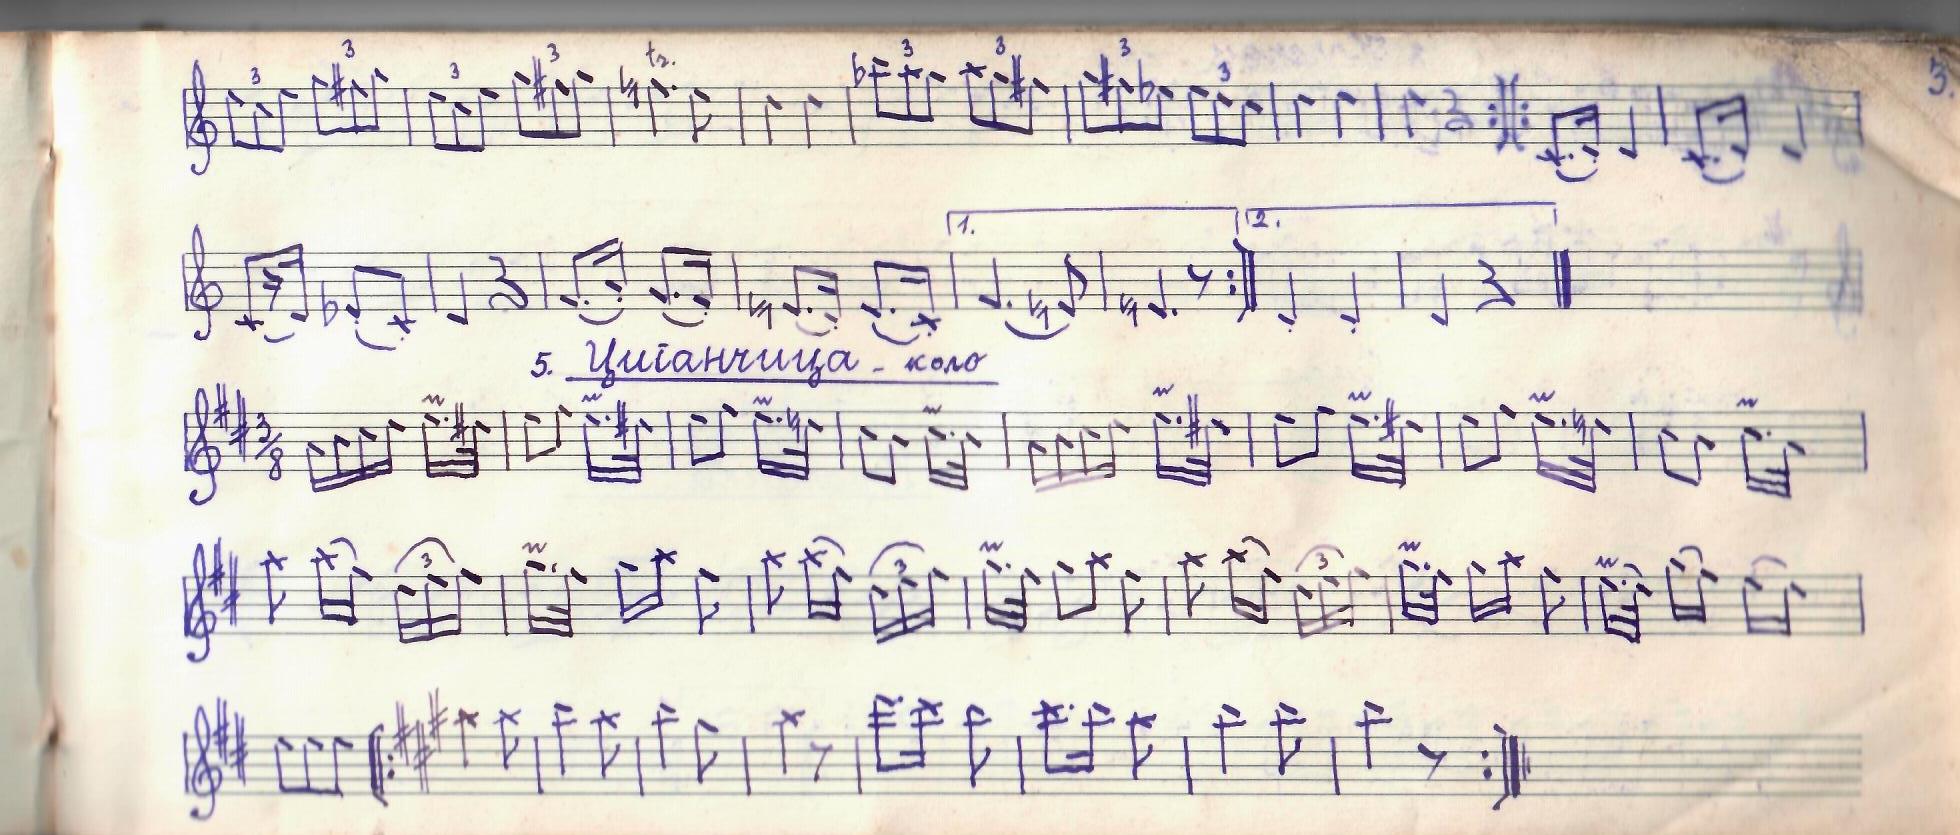 3.
3 3 3 3 tr. 3 3 3 3
1. 2.
5. Циганчица - коло
3/8
3 3 3